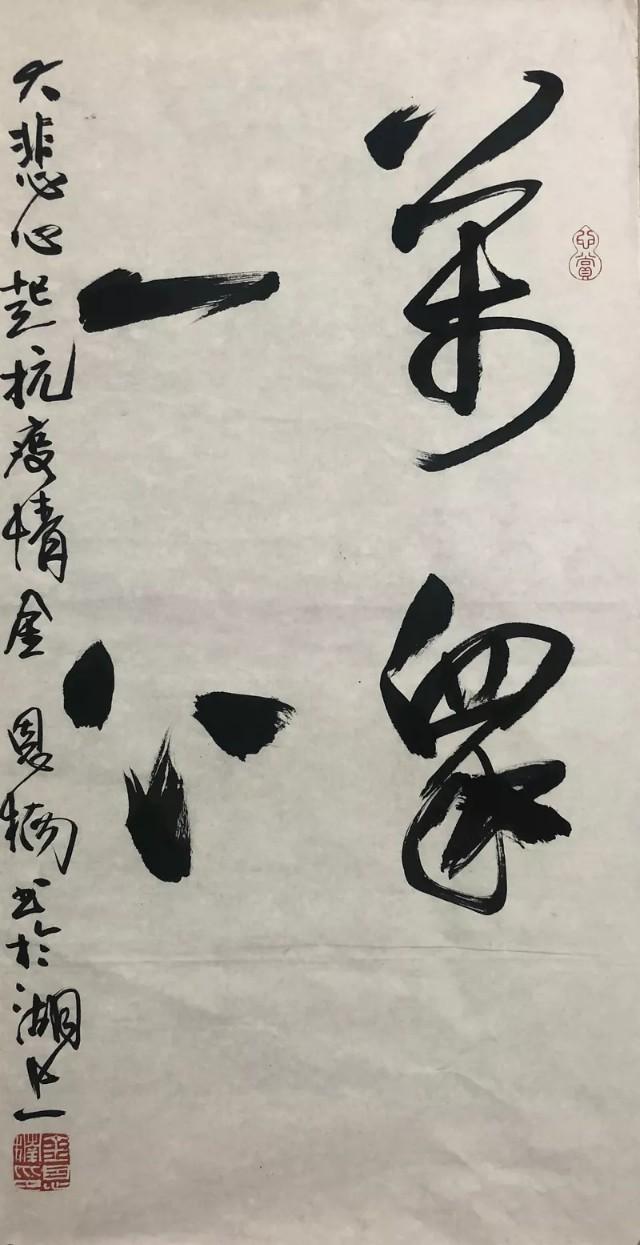 萬眾
一心
大悲心起抗疫情金恩楠书於湖上